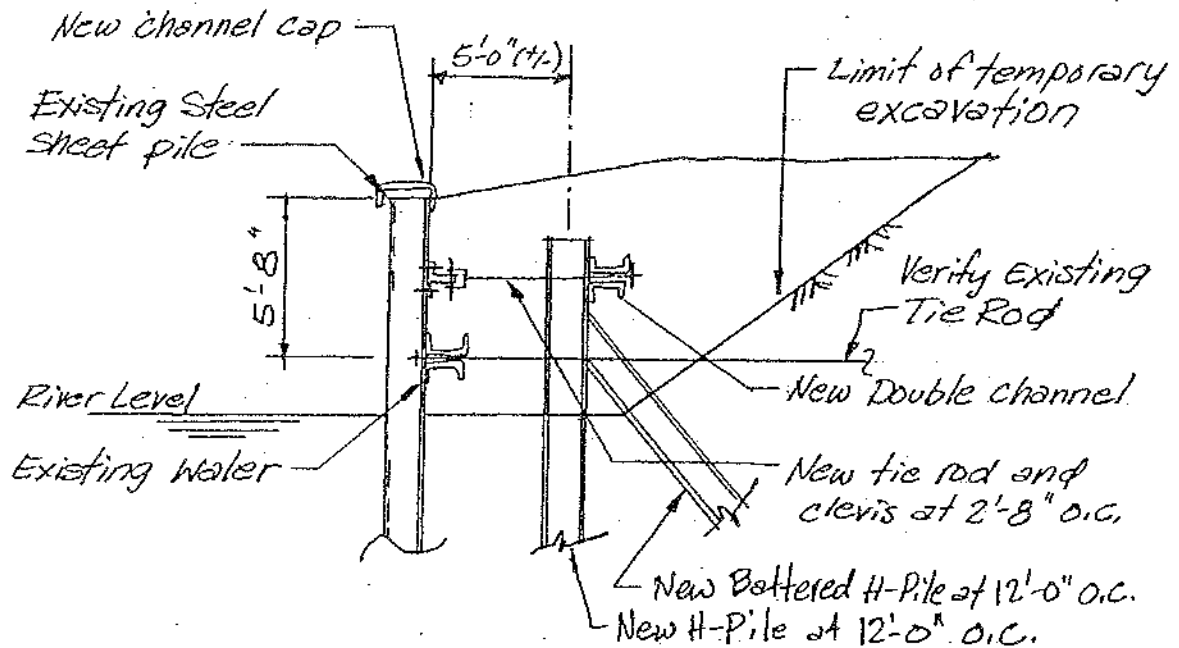 New channel cap
5'-0" (+/-)
Limit of temporary
excavation
Existing Steel
sheet pile
5'-8"
Verify Existing
Tie Rod
River Level
New Double channel
Existing Waler
New tie rod and
clevis at 2'-8" O.C.
New Battered H-Pile at 12'-0" O.C.
New H-Pile at 12'-0" O.C.